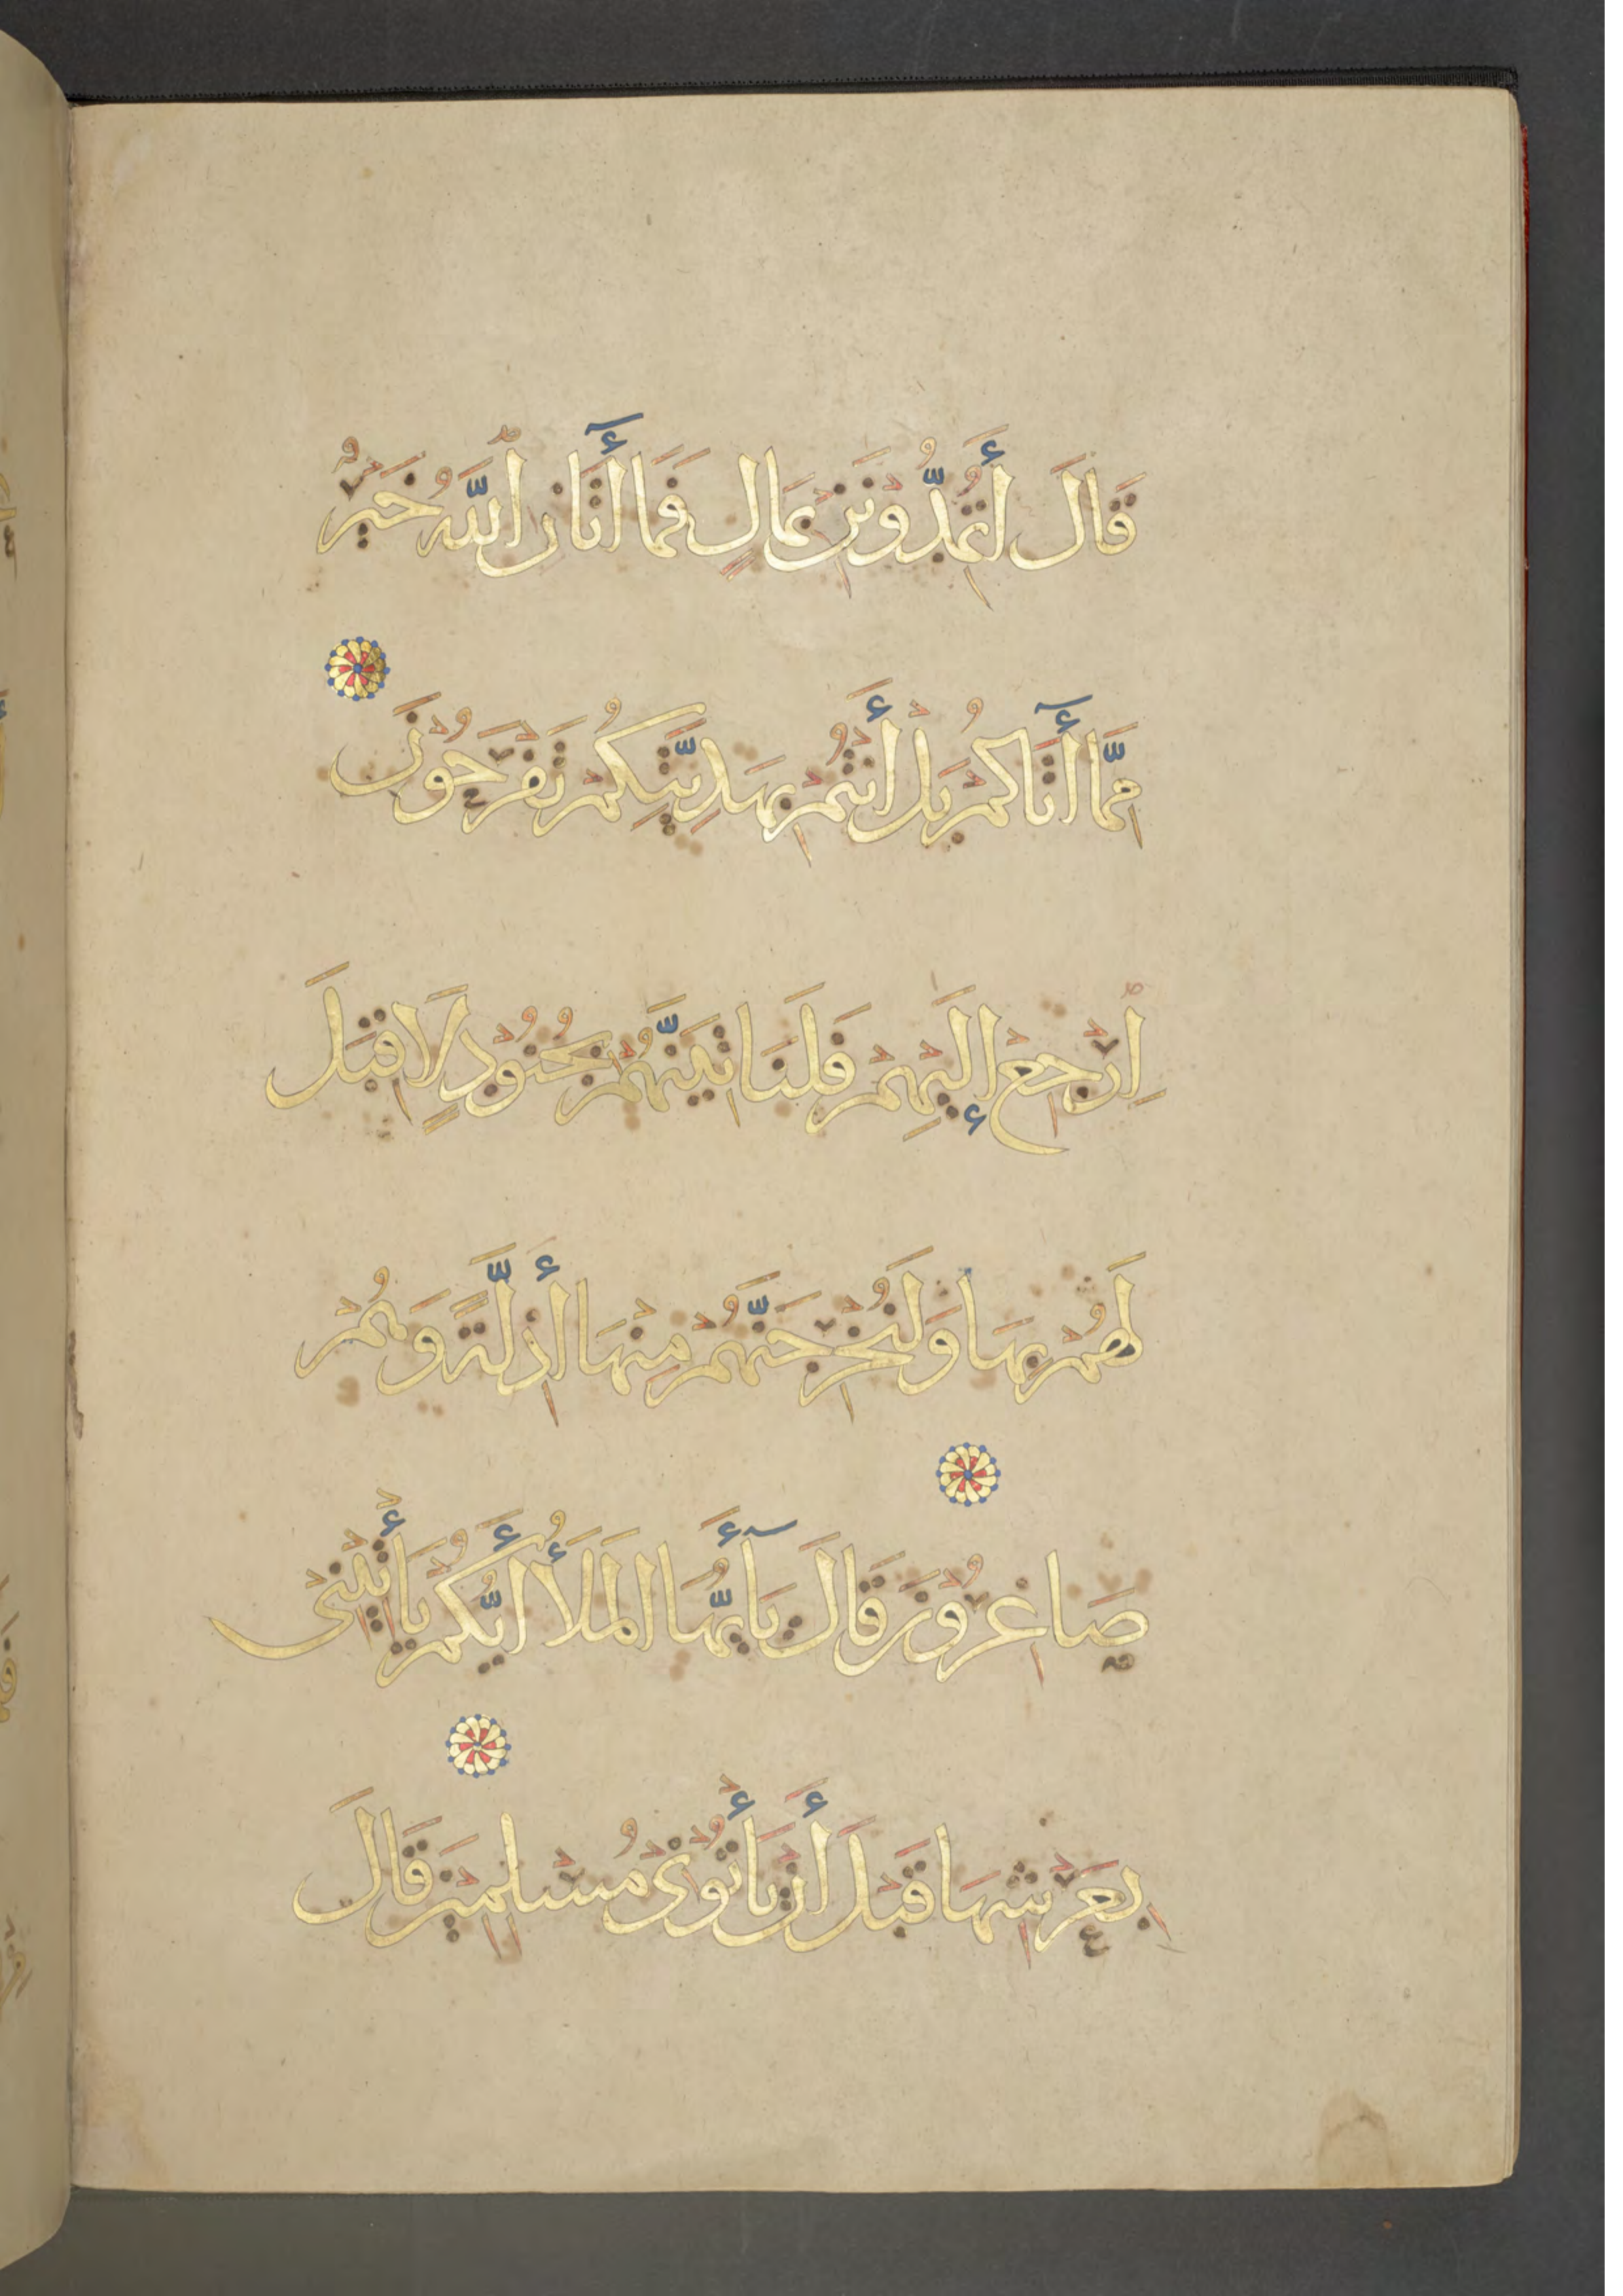 قَالَ أَتُمِدُّونَنِ بِمَالٍ فَمَا أَتَانِ ٱللَّهُ خَيْرٌ
مِّمَّا أَتَاكُمْ بَلْ أَنْتُمْ بِهَدِيَّتِكُمْ تَفْرَحُونَ
اِرْجِعْ إِلَيْهِمْ فَلَنَاتِيَنَّهُمْ بِجُنُودٍ لَا قِبَلَ
لَهُمْ بِهَا وَلَنُخْرِجَنَّهُمْ مِنْهَا أَذِلَّةً وَهُمْ
صَاغِرُونَ قَالَ يَآأَيُّهَا الْمَلَأُ أَيُّكُمْ يَأْتِينِى
بِعَرْشِهَا قَبْلَ أَنْ يَأْتُونِى مُسْلِمِينَ قَالَ